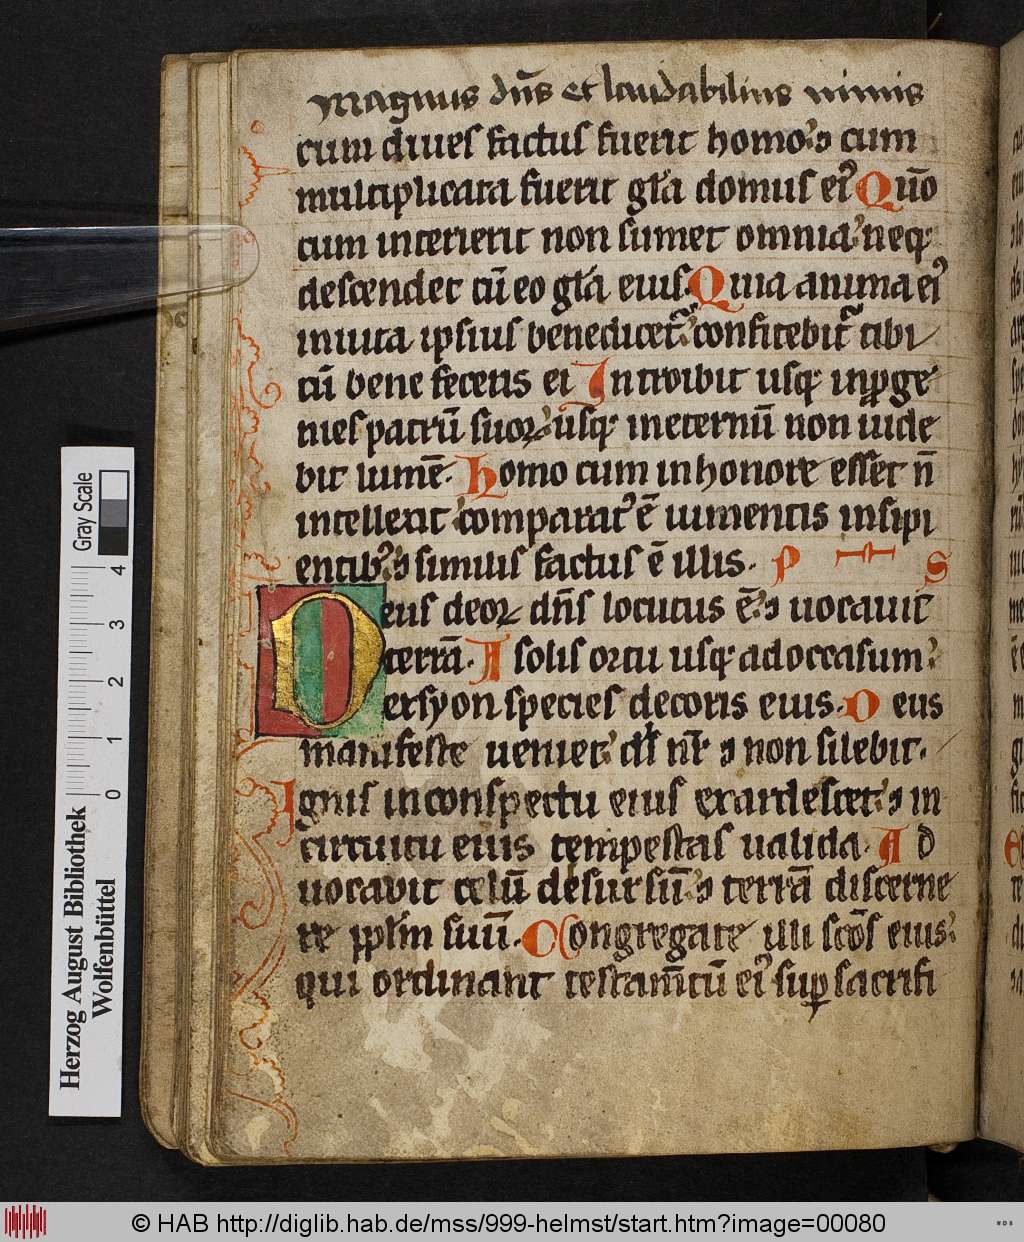 Magnus dn̄s et laudabilius nimis
cum diues factus fuerit homo. ⁊ cum
multiplicata fuerit gl̄a domus ei᾽ Qūo
cum interierit non sumet omnia neq;
descendet cū eo gl̄a eius. Quia anima ei᾽
in uita ipsius benedicet᾽ confitebit᾽ tibi
cū bene feceris ei Introibit usq; in ꝓge
nies patrū suoꝝ usq; in eternū non uide
bit lumē. Homo cum in honore esset n̄
intellexit comparat᾽ ē iumentis insipi
entib᾽ ⁊ similis factus ē illis. P S
Deus deoꝝ dn̄s locutus ē. ⁊ uocauit
terrā. A solis ortu usq; ad occasum
ex syon species decoris eius. Deus
manifeste ueniet ds̄ nr̄ ⁊ non silebit.
Ignis in conspectu eius exardescet ⁊ in
circuitu eius tempestas ualida. Ad
uocauit celū desursū ⁊ terrā discerne
re ppl̄m suū. Congregate illi scōs eius
qui ordinant testam̄tū ei᾽ suꝑ sacrifi
Gray Scale
4
3
2
1
0
Herzog August Bibliothek
Wolfenbüttel
© HAB http://diglib.hab.de/mss/999-helmst/start.htm?image=00080